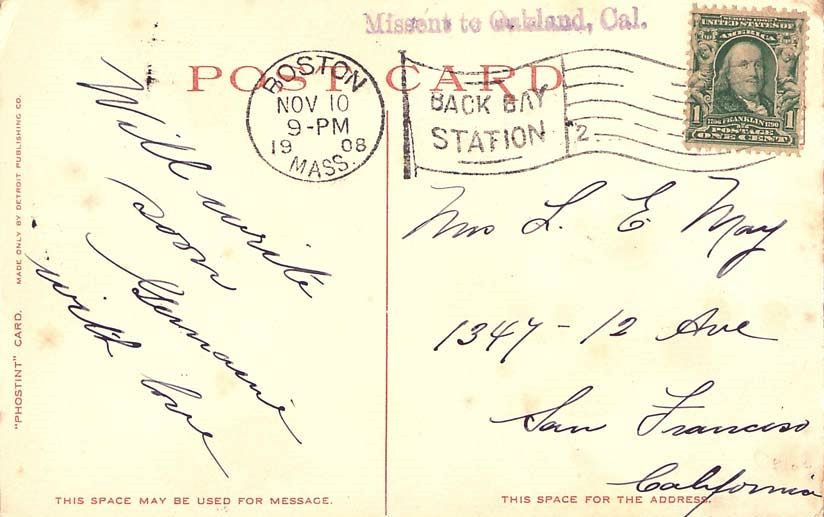 Missent to Oakland, Cal.
POST CARD
BOSTON
NOV 10
9-PM
1908
MASS.
BACK BAY
STATION
2
SERIES 1902
UNITED STATES OF
AMERICA
1 1706 FRANKLIN 1790 1
POSTAGE
ONE CENT
Will write
soon
Germaine
with love
Mrs L. E. May
1347-12 Ave
San Francisco
California
"PHOSTINT" CARD. MADE ONLY BY DETROIT PUBLISHING CO.
THIS SPACE MAY BE USED FOR MESSAGE.
THIS SPACE FOR THE ADDRESS.